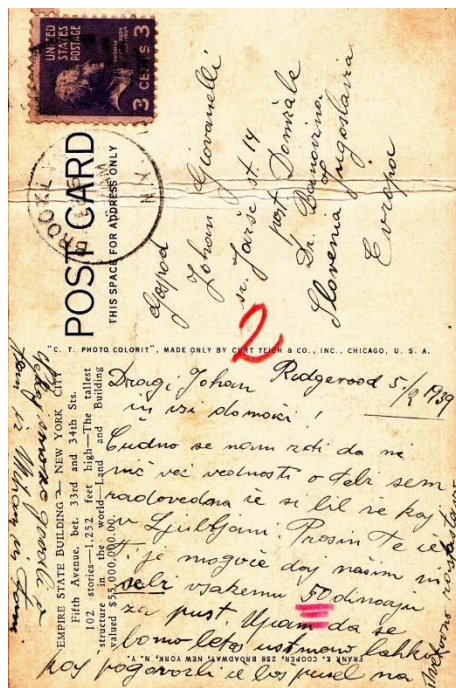 UNITED
STATES
POSTAGE
3 CENTS 3
BROOKLYN
POST CARD
THIS SPACE FOR ADDRESS ONLY
Gospod
Johan Giovanelli
sr. Jarše št. 14
post Domžale
Dr. Banovina
Slovenia Jugoslavia
Evropa
2
"C. T. PHOTO COLORIT", MADE ONLY BY CURT TEICH & CO., INC., CHICAGO, U. S. A.
EMPIRE STATE BUILDING — NEW YORK CITY
Fifth Avenue, bet. 33rd and 34th Sts.
102 stories—1,252 feet high—The tallest
structure in the world—Land and Building
valued $55,000,000.00.
FRANK E. COOPER, 258 BROADWAY, NEW YORK, N. Y.
Ridgewood 5/2 1939
Dragi Johan
in vsi domači!
Čudno se nam zdi da ni
nič več vednosti o tebi sem
radovedna če si bil že kaj
v Ljubljani. Prosim Te če
Ti je mogoče daj našim
vsakemu 50 dinarju
za pust. Upam da se
bomo letos ustmeno lahko
kaj pogovorili če boš prišel na